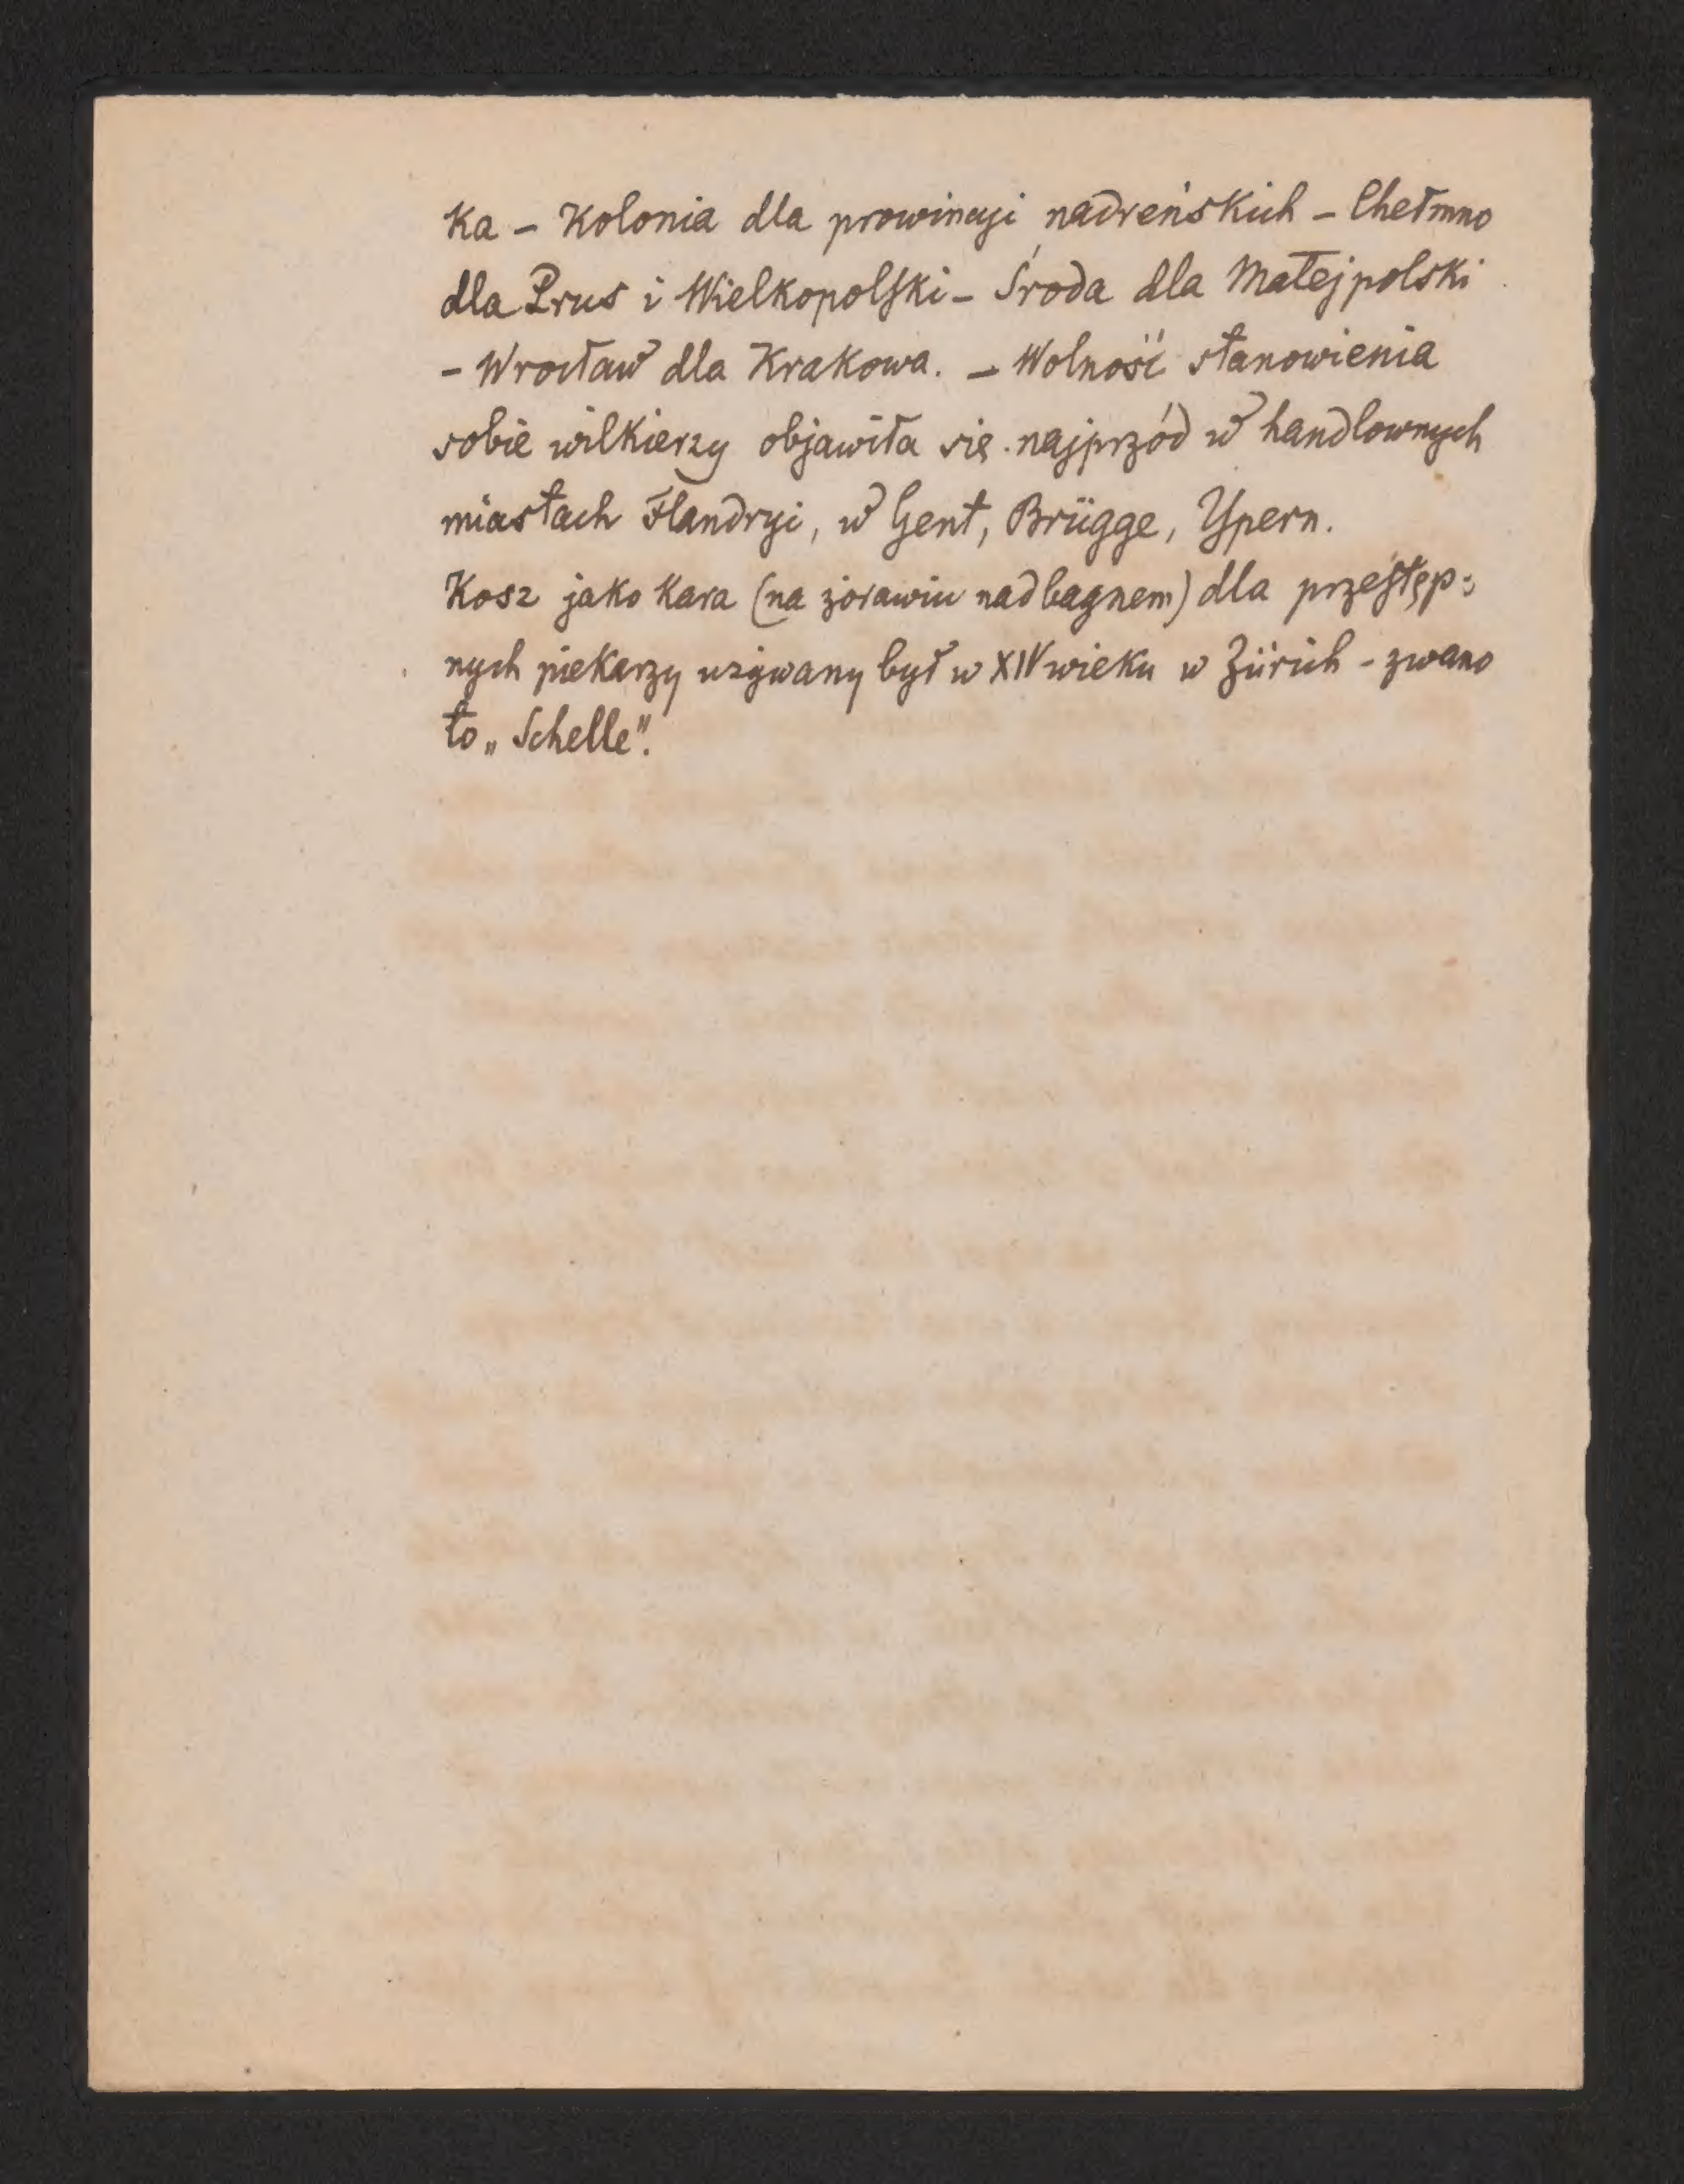 ka – Kolonia dla prowincyi nadreńskich – Chełmno
dla Prus i Wielkopolski – Środa dla Małejpolski
– Wrocław dla Krakowa. – Wolność stanowienia
sobie wilkierzy objawiła się najprzód w handlownych
miastach Flandryi, w Gent, Brügge, Ypern.
Kosz jako kara (na żórawiu nad bagnem) dla przestęp=
nych piekarzy używany był w XIV wieku w Zürich - zwano
to „Schelle".